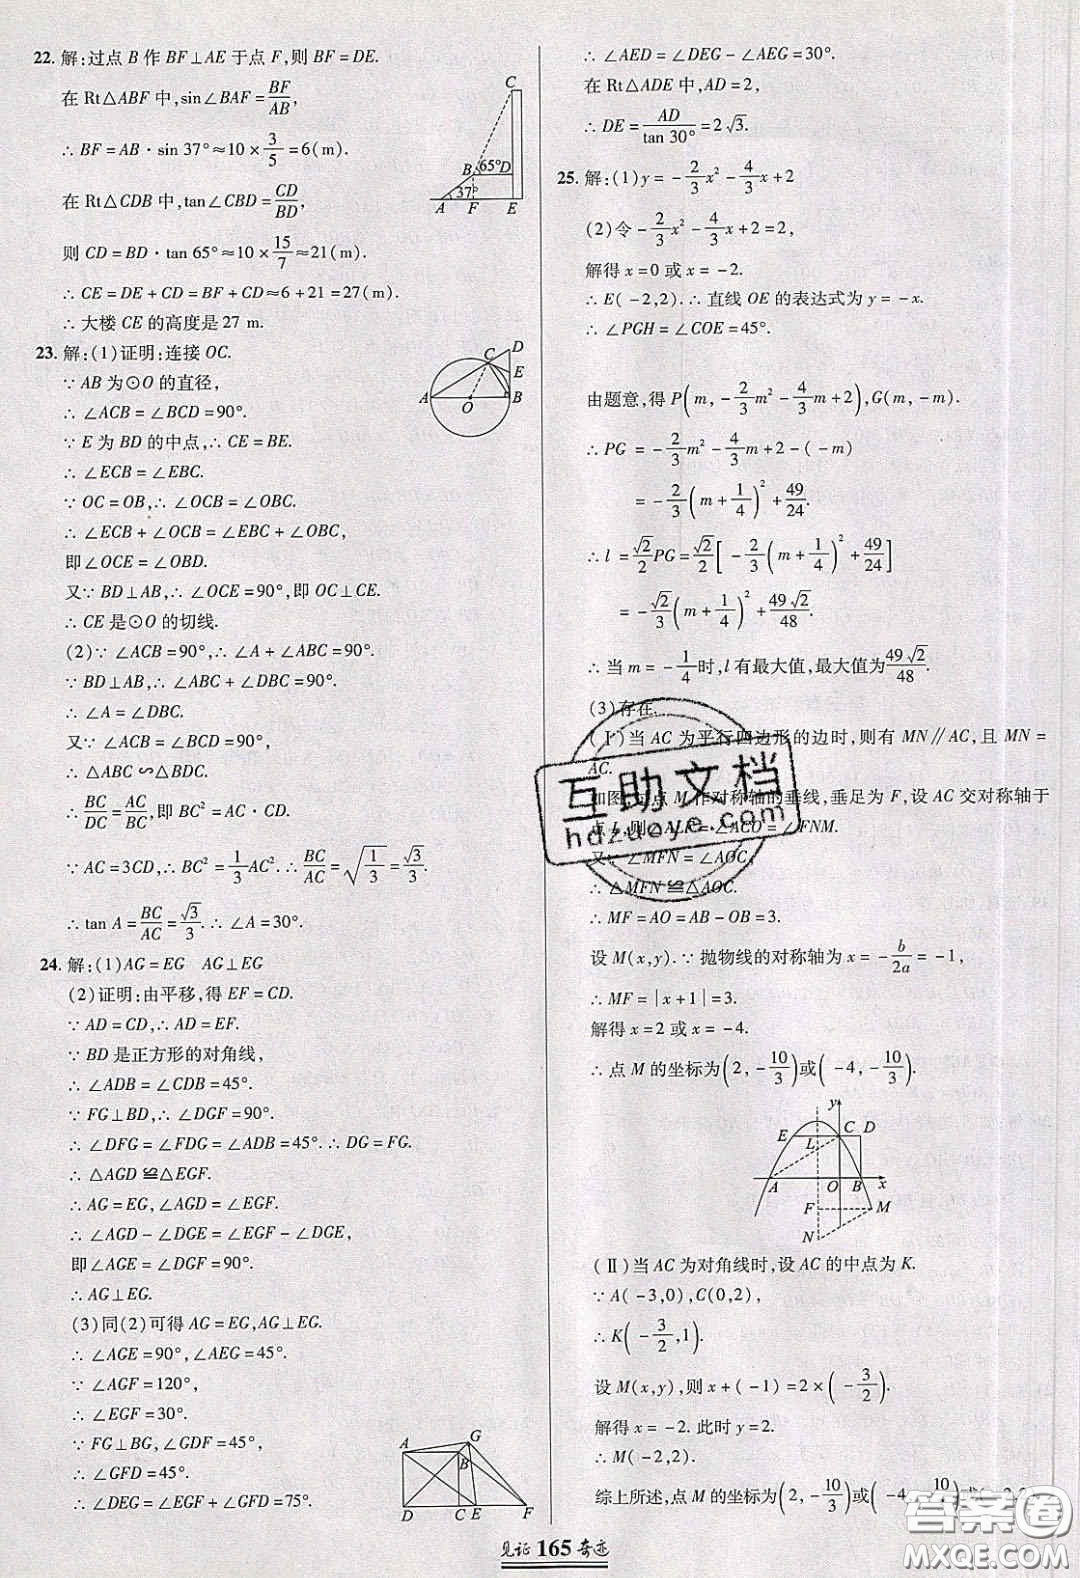 22. 解:过点 B 作 BF⊥AE 于点 F,则 BF=DE.
在 Rt△ABF 中,sin∠BAF=BF/AB,
∴ BF=AB·sin 37°≈10×3/5=6(m).
在 Rt△CDB 中,tan∠CBD=CD/BD,
则 CD=BD·tan 65°≈10×15/7≈21(m).
∴ CE=DE+CD=BF+CD≈6+21=27(m).
∴ 大楼 CE 的高度是 27 m.
C
B 65° D
37°
A F E
23. 解:(1)证明:连接 OC.
∵ AB 为⊙O 的直径,
∴ ∠ACB=∠BCD=90°.
∵ E 为 BD 的中点,∴ CE=BE.
∴ ∠ECB=∠EBC.
∵ OC=OB,∴ ∠OCB=∠OBC.
∴ ∠ECB+∠OCB=∠EBC+∠OBC,
即∠OCE=∠OBD.
又∵ BD⊥AB,∴ ∠OCE=90°,即 OC⊥CE.
∴ CE 是⊙O 的切线.
(2)∵ ∠ACB=90°,∴ ∠A+∠ABC=90°.
∵ BD⊥AB,∴ ∠ABC+∠DBC=90°.
∴ ∠A=∠DBC.
又∵ ∠ACB=∠BCD=90°,
∴ △ABC∽△BDC.
∴ BC/DC=AC/BC,即 BC²=AC·CD.
∵ AC=3CD,∴ BC²=1/3AC².∴ BC/AC=√(1/3)=√3/3.
∴ tan A=BC/AC=√3/3.∴ ∠A=30°.
C D
E
A O B
24. 解:(1)AG=EG AG⊥EG
(2)证明:由平移,得 EF=CD.
∵ AD=CD,∴ AD=EF.
∵ BD 是正方形的对角线,
∴ ∠ADB=∠CDB=45°.
∵ FG⊥BD,∴ ∠DGF=90°.
∴ ∠DFG=∠FDG=∠ADB=45°.∴ DG=FG.
∴ △AGD≌△EGF.
∴ AG=EG,∠AGD=∠EGF.
∴ ∠AGD-∠DGE=∠EGF-∠DGE,
即∠AGE=∠DGF=90°.
∴ AG⊥EG.
(3)同(2)可得 AG=EG,AG⊥EG.
∴ ∠AGE=90°,∠AEG=45°.
∵ ∠AGF=120°,
∴ ∠EGF=30°.
∵ FG⊥BG,∠GDF=45°,
∴ ∠GFD=45°.
∴ ∠DEG=∠EGF+∠GFD=75°.
A G
B
D C E F
∴ ∠AED=∠DEG-∠AEG=30°.
在 Rt△ADE 中,AD=2,
∴ DE=AD/tan 30°=2√3.
25. 解:(1)y=-2/3x²-4/3x+2
(2)令-2/3x²-4/3x+2=2,
解得 x=0 或 x=-2.
∴ E(-2,2).∴ 直线 OE 的表达式为 y=-x.
∴ ∠PGH=∠COE=45°.
由题意,得 P(m,-2/3m²-4/3m+2),G(m,-m).
∴ PG=-2/3m²-4/3m+2-(-m)
=-2/3(m+1/4)²+49/24.
∴ l=√2/2PG=√2/2[-2/3(m+1/4)²+49/24]
=-√2/3(m+1/4)²+49√2/48.
∴ 当 m=-1/4时,l 有最大值,最大值为49√2/48.
(3)存在.
(Ⅰ)当 AC 为平行四边形的边时,则有 MN∥AC,且 MN=
AC.
如图,过点 M 作对称轴的垂线,垂足为 F,设 AC 交对称轴于
点 L,则∠ALF=∠ACO=∠FNM.
又∵ ∠MFN=∠AOC,
∴ △MFN≌△AOC.
∴ MF=AO=AB-OB=3.
设 M(x,y).∵ 抛物线的对称轴为 x=-b/2a=-1,
∴ MF=|x+1|=3.
解得 x=2 或 x=-4.
∴ 点 M 的坐标为(2,-10/3)或(-4,-10/3).
y
E C D
L
A O B x
F M
N
(Ⅱ)当 AC 为对角线时,设 AC 的中点为 K.
∵ A(-3,0),C(0,2),
∴ K(-3/2,1).
设 M(x,y),则 x+(-1)=2×(-3/2).
解得 x=-2.此时 y=2.
∴ M(-2,2).
综上所述,点 M 的坐标为(2,-10/3)或(-4,-10/3)或(-2,2).
见证 165 奇迹
互助文档
hdzuoye.com
答案圈
MXQE.COM